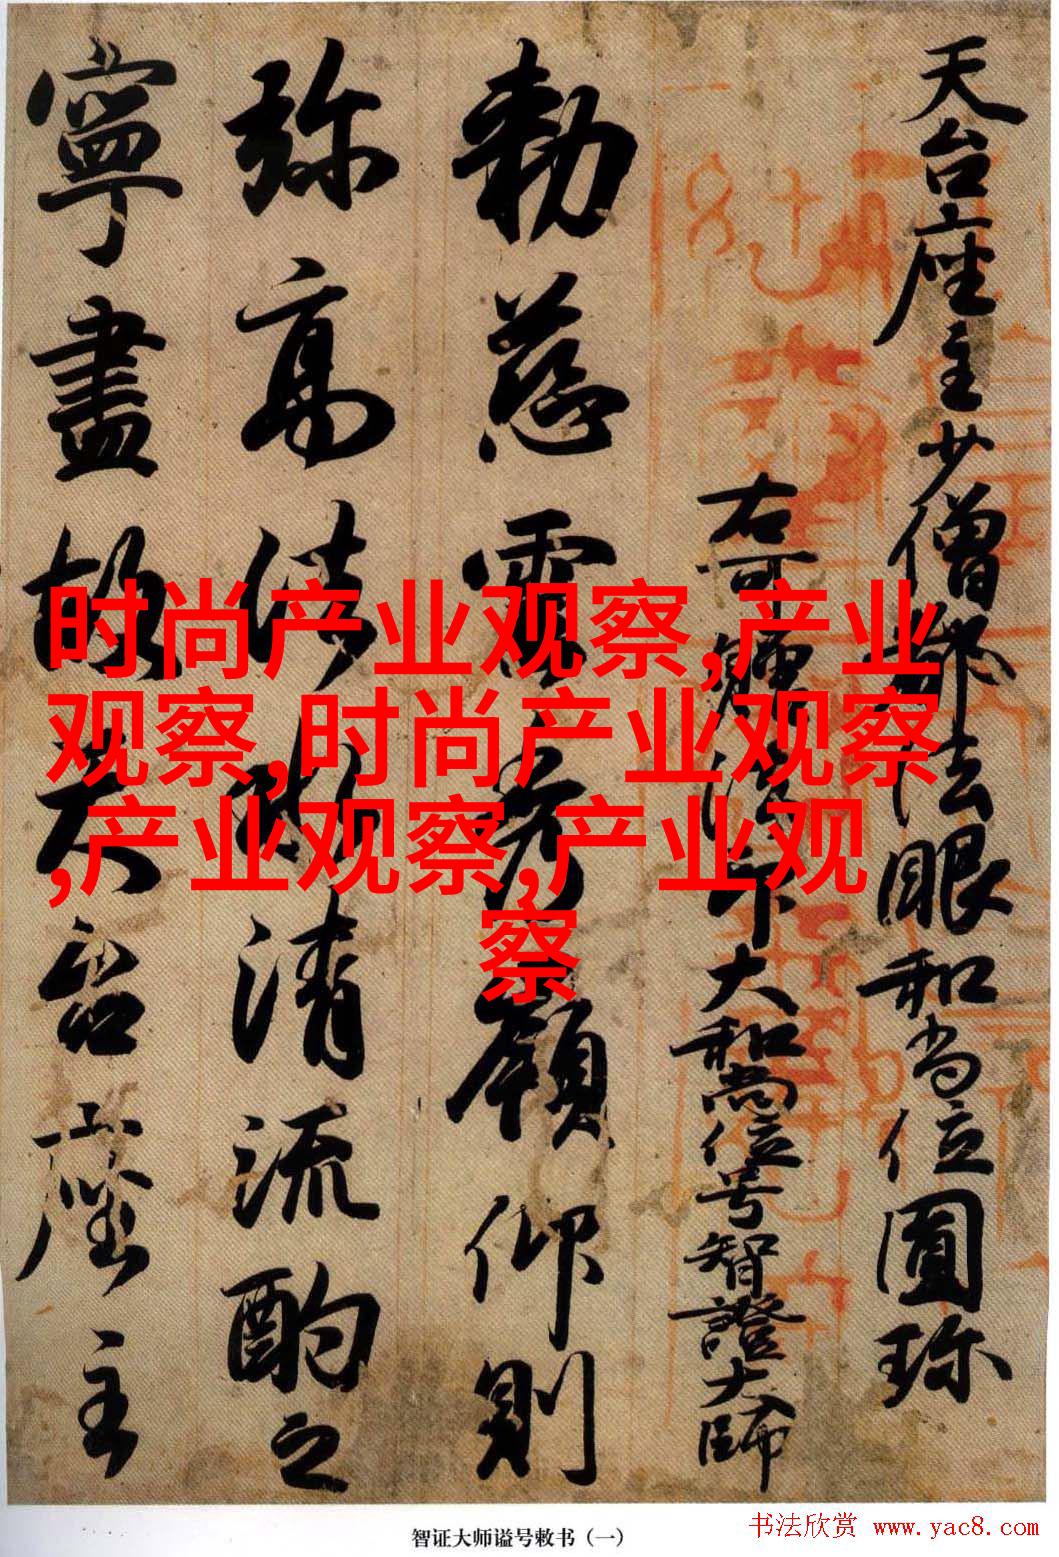 天台座主少僧都法眼和尚位圓珎
右可贈法印大和尚位号智證大師
勅慈雲秀嶺仰則
弥高法水清流酌之
寧盡故天台座主
时尚产业观察,产业
观察,时尚产业观察
,产业观察,产业观
察
智证大师谥号敕书（一）
书法欣赏 www.yac8.com